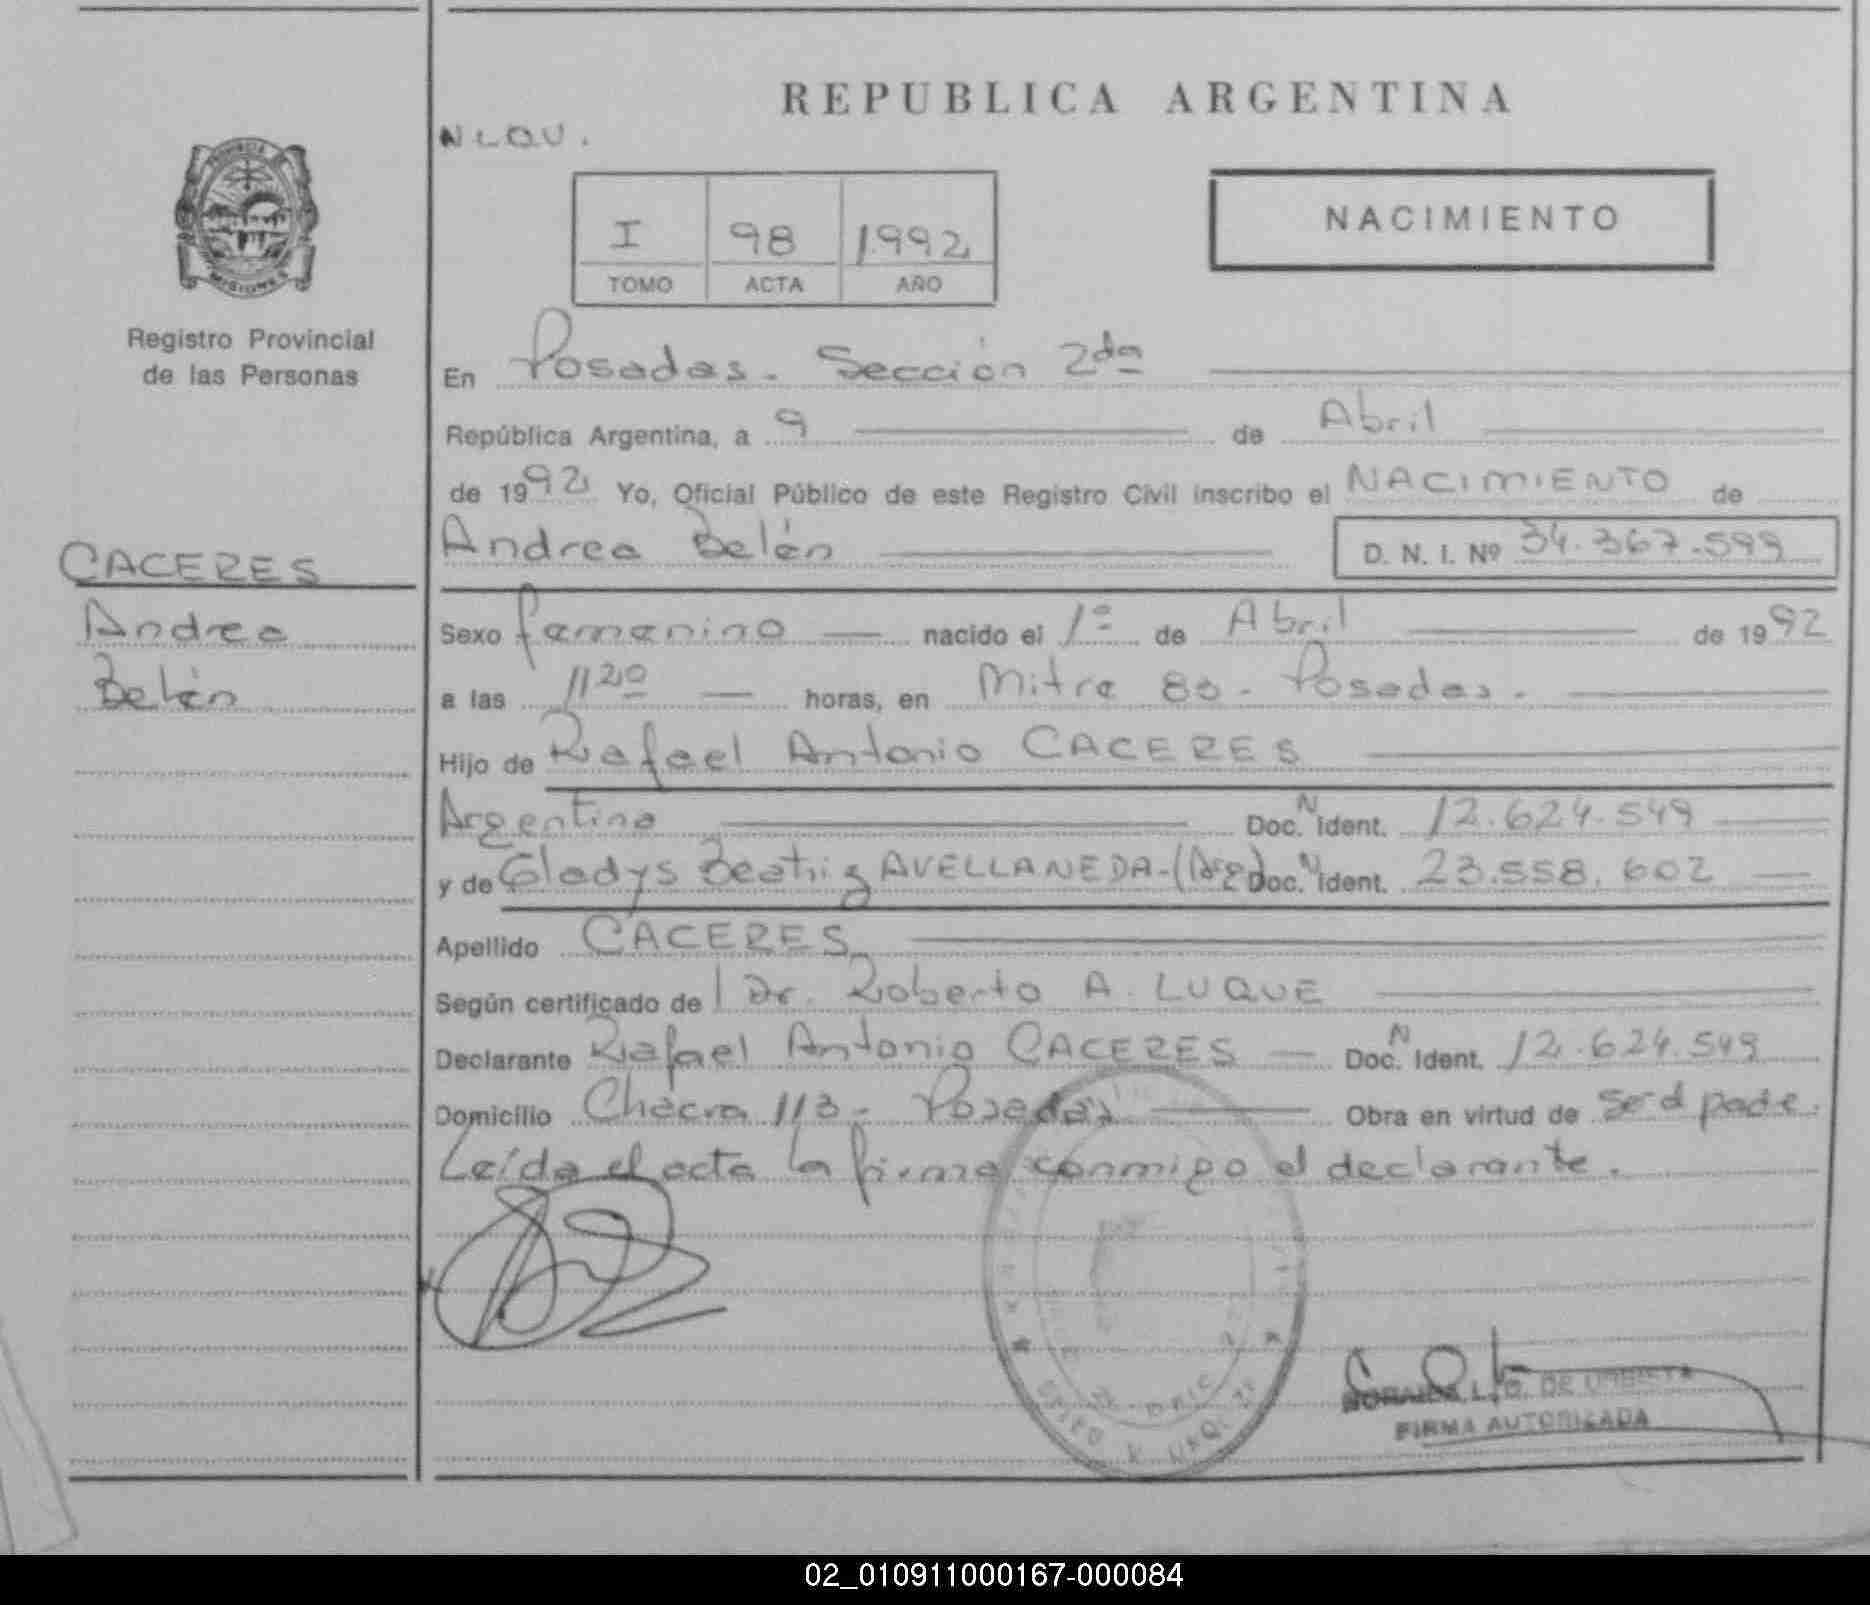 REPUBLICA ARGENTINA
N L Q U .
PROVINCIA DE MISIONES
I 98 1992
TOMO ACTA AÑO
NACIMIENTO
Registro Provincial
de las Personas
En Posadas. Sección 2da
República Argentina, a 9 de Abril
de 1992 Yo, Oficial Público de este Registro Civil inscribo el NACIMIENTO de
Andrea Belén D. N. I. Nº 34.367.599
CACERES
Andrea
Belén
Sexo femenino nacido el 1º de Abril de 1992
a las 1120 horas, en Mitre 80 - Posadas.
Hijo de Rafael Antonio CACERES
Argentino Doc. N Ident. 12.624.549
y de Gladys Beatriz AVELLANEDA-(Arg) Doc. N Ident. 23.558.602
Apellido CACERES
Según certificado del Dr. Roberto A. LUQUE
Declarante Rafael Antonio CACERES Doc. N Ident. 12.624.549
Domicilio Chacra 113 - Posadas Obra en virtud de ser el padre.
Leída el acta la firma conmigo el declarante.
L. G. DE URBIETA
FIRMA AUTORIZADA
02_010911000167-000084